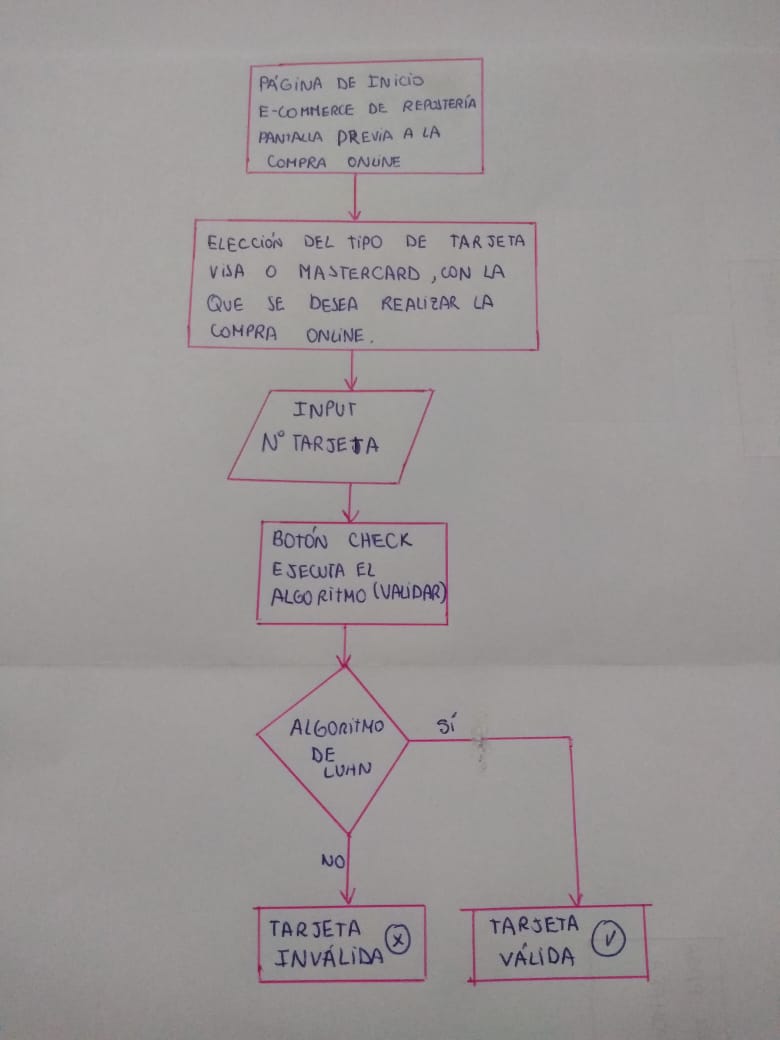 PÁGINA DE INICIO
E-COMMERCE DE REPOSTERÍA
PANTALLA PREVIA A LA
COMPRA ONLINE
ELECCIÓN DEL TIPO DE TARJETA
VISA O MASTERCARD, CON LA
QUE SE DESEA REALIZAR LA
COMPRA ONLINE.
INPUT
N° TARJETA
BOTÓN CHECK
EJECUTA EL
ALGORITMO (VALIDAR)
ALGORITMO
DE
LUHN
SÍ
NO
TARJETA
INVÁLIDA X
TARJETA
VÁLIDA V